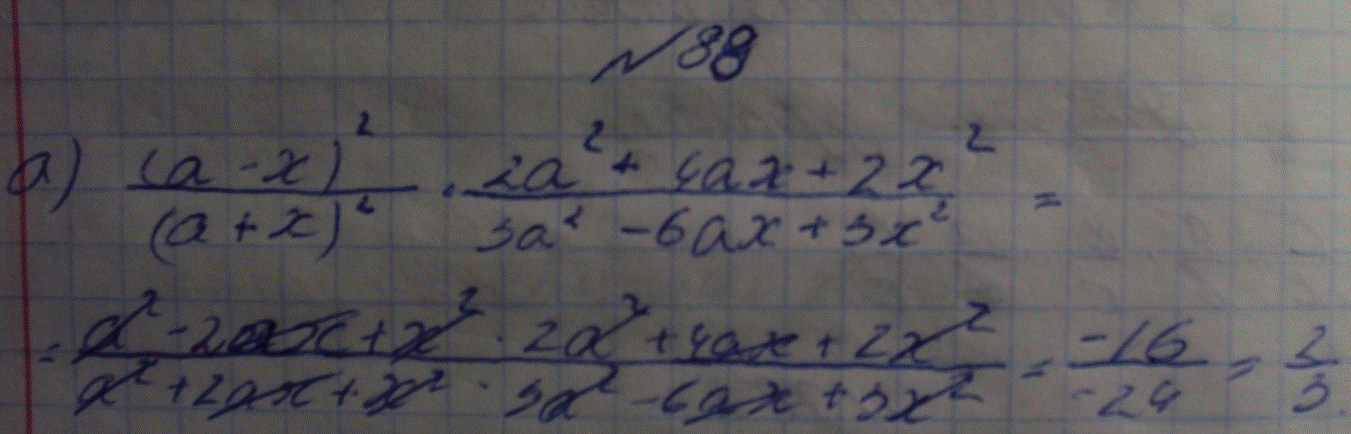 №88
а) (a - x)² / (a + x)² · 2a² + 4ax + 2x² / 3a² - 6ax + 3x² =
= a² - 2ax + x² · 2a² + 4ax + 2x² / a² + 2ax + x² · 3a² - 6ax + 3x² = -16 / -24 = 2 / 3.